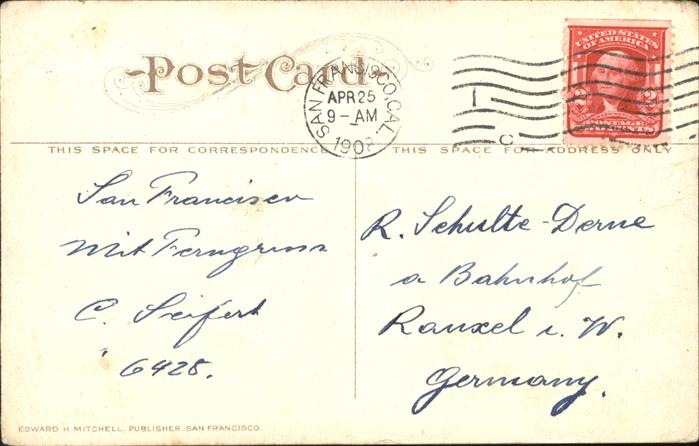 Post Card
SAN FRANCISCO, CAL.
APR 25
9 - AM
1908
UNITED STATES
OF AMERICA
2 2
POSTAGE
THIS SPACE FOR CORRESPONDENCE
THIS SPACE FOR ADDRESS ONLY
San Francisco
mit Ferngruss
C. Seifert
6428.
R. Schulte-Derne
a Bahnhof
Rauxel i. W.
Germany.
EDWARD H. MITCHELL, PUBLISHER, SAN FRANCISCO.